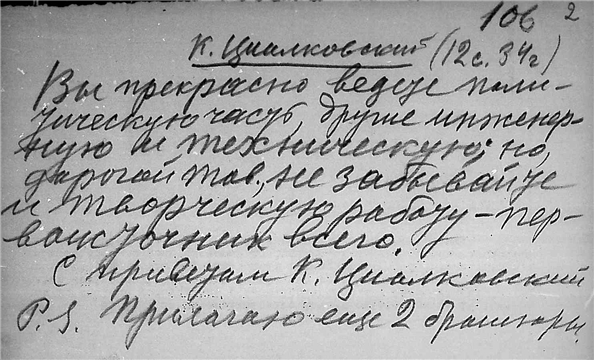 106 2
К. Циалковский (12 с. 34 г)
Вы прекрасно ведете поли-
тическую часть, другие инженер-
ную и техническую; но,
дорогой тов., не забывайте
и творческую работу – пер-
воисточник всего.
С приветом К. Циалковский
P.S. Прилагаю еще 2 брошюры.